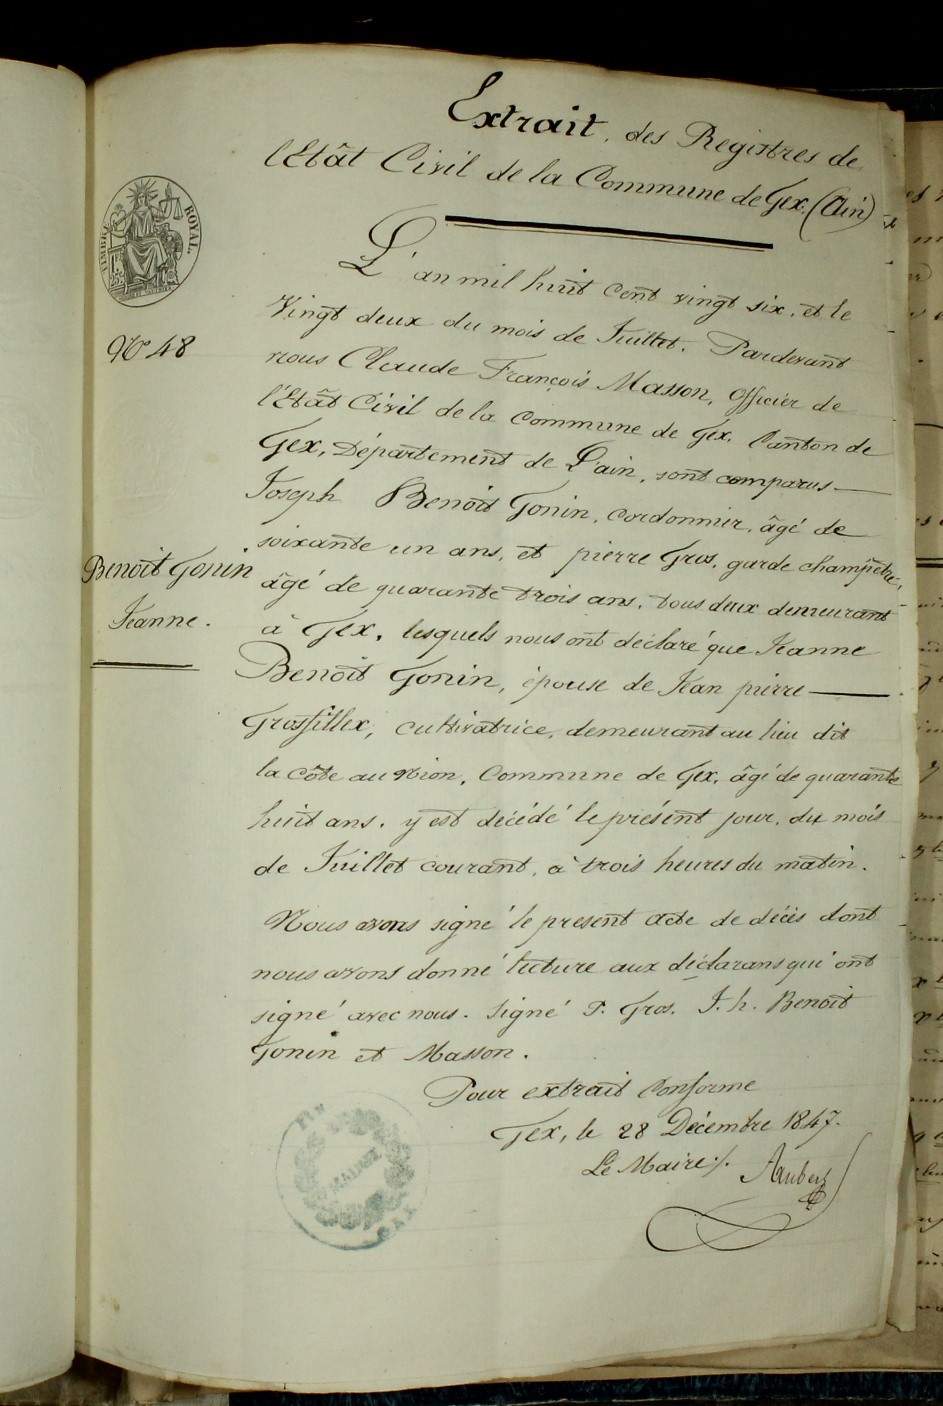 Extrait, des Registres de
l'Etât Civil de la Commune de Gex. (Ain)
TIMBRE ROYAL.
L'an mil huit cent vingt six, et le
Vingt deux du mois de Juillet. Pardevant
nous Claude François Masson, Officier de
l'Etât Civil de la Commune de Gex. Canton de
Gex, Département de L'ain, sont comparus
Joseph Benoit Gonin, cordonnier, âgé de
soixante un ans, et pierre Gros, garde champêtre,
âgé de quarante trois ans, tous deux demeurant
à Gex, lesquels nous ont déclaré que Jeanne
Benoit Gonin, épouse de Jean pierre
Grosfillex, cultivatrice, demeurant au lieu dit
la côte au Nion, Commune de Gex, âgé de quarante
huit ans, y est décédé le présent jour, du mois
de Juillet courant, à trois heures du matin.
Nous avons signé le present acte de décès dont
nous avons donné lecture aux déclarans qui ont
signé avec nous. Signé P. Gros. J. h. Benoit
Gonin et Masson.
Pour extrait Conforme
Gex, le 28 Décembre 1847.
Le Maire /.
No 48
Benoit Gonin
Jeanne.
MAIRIE
GEX